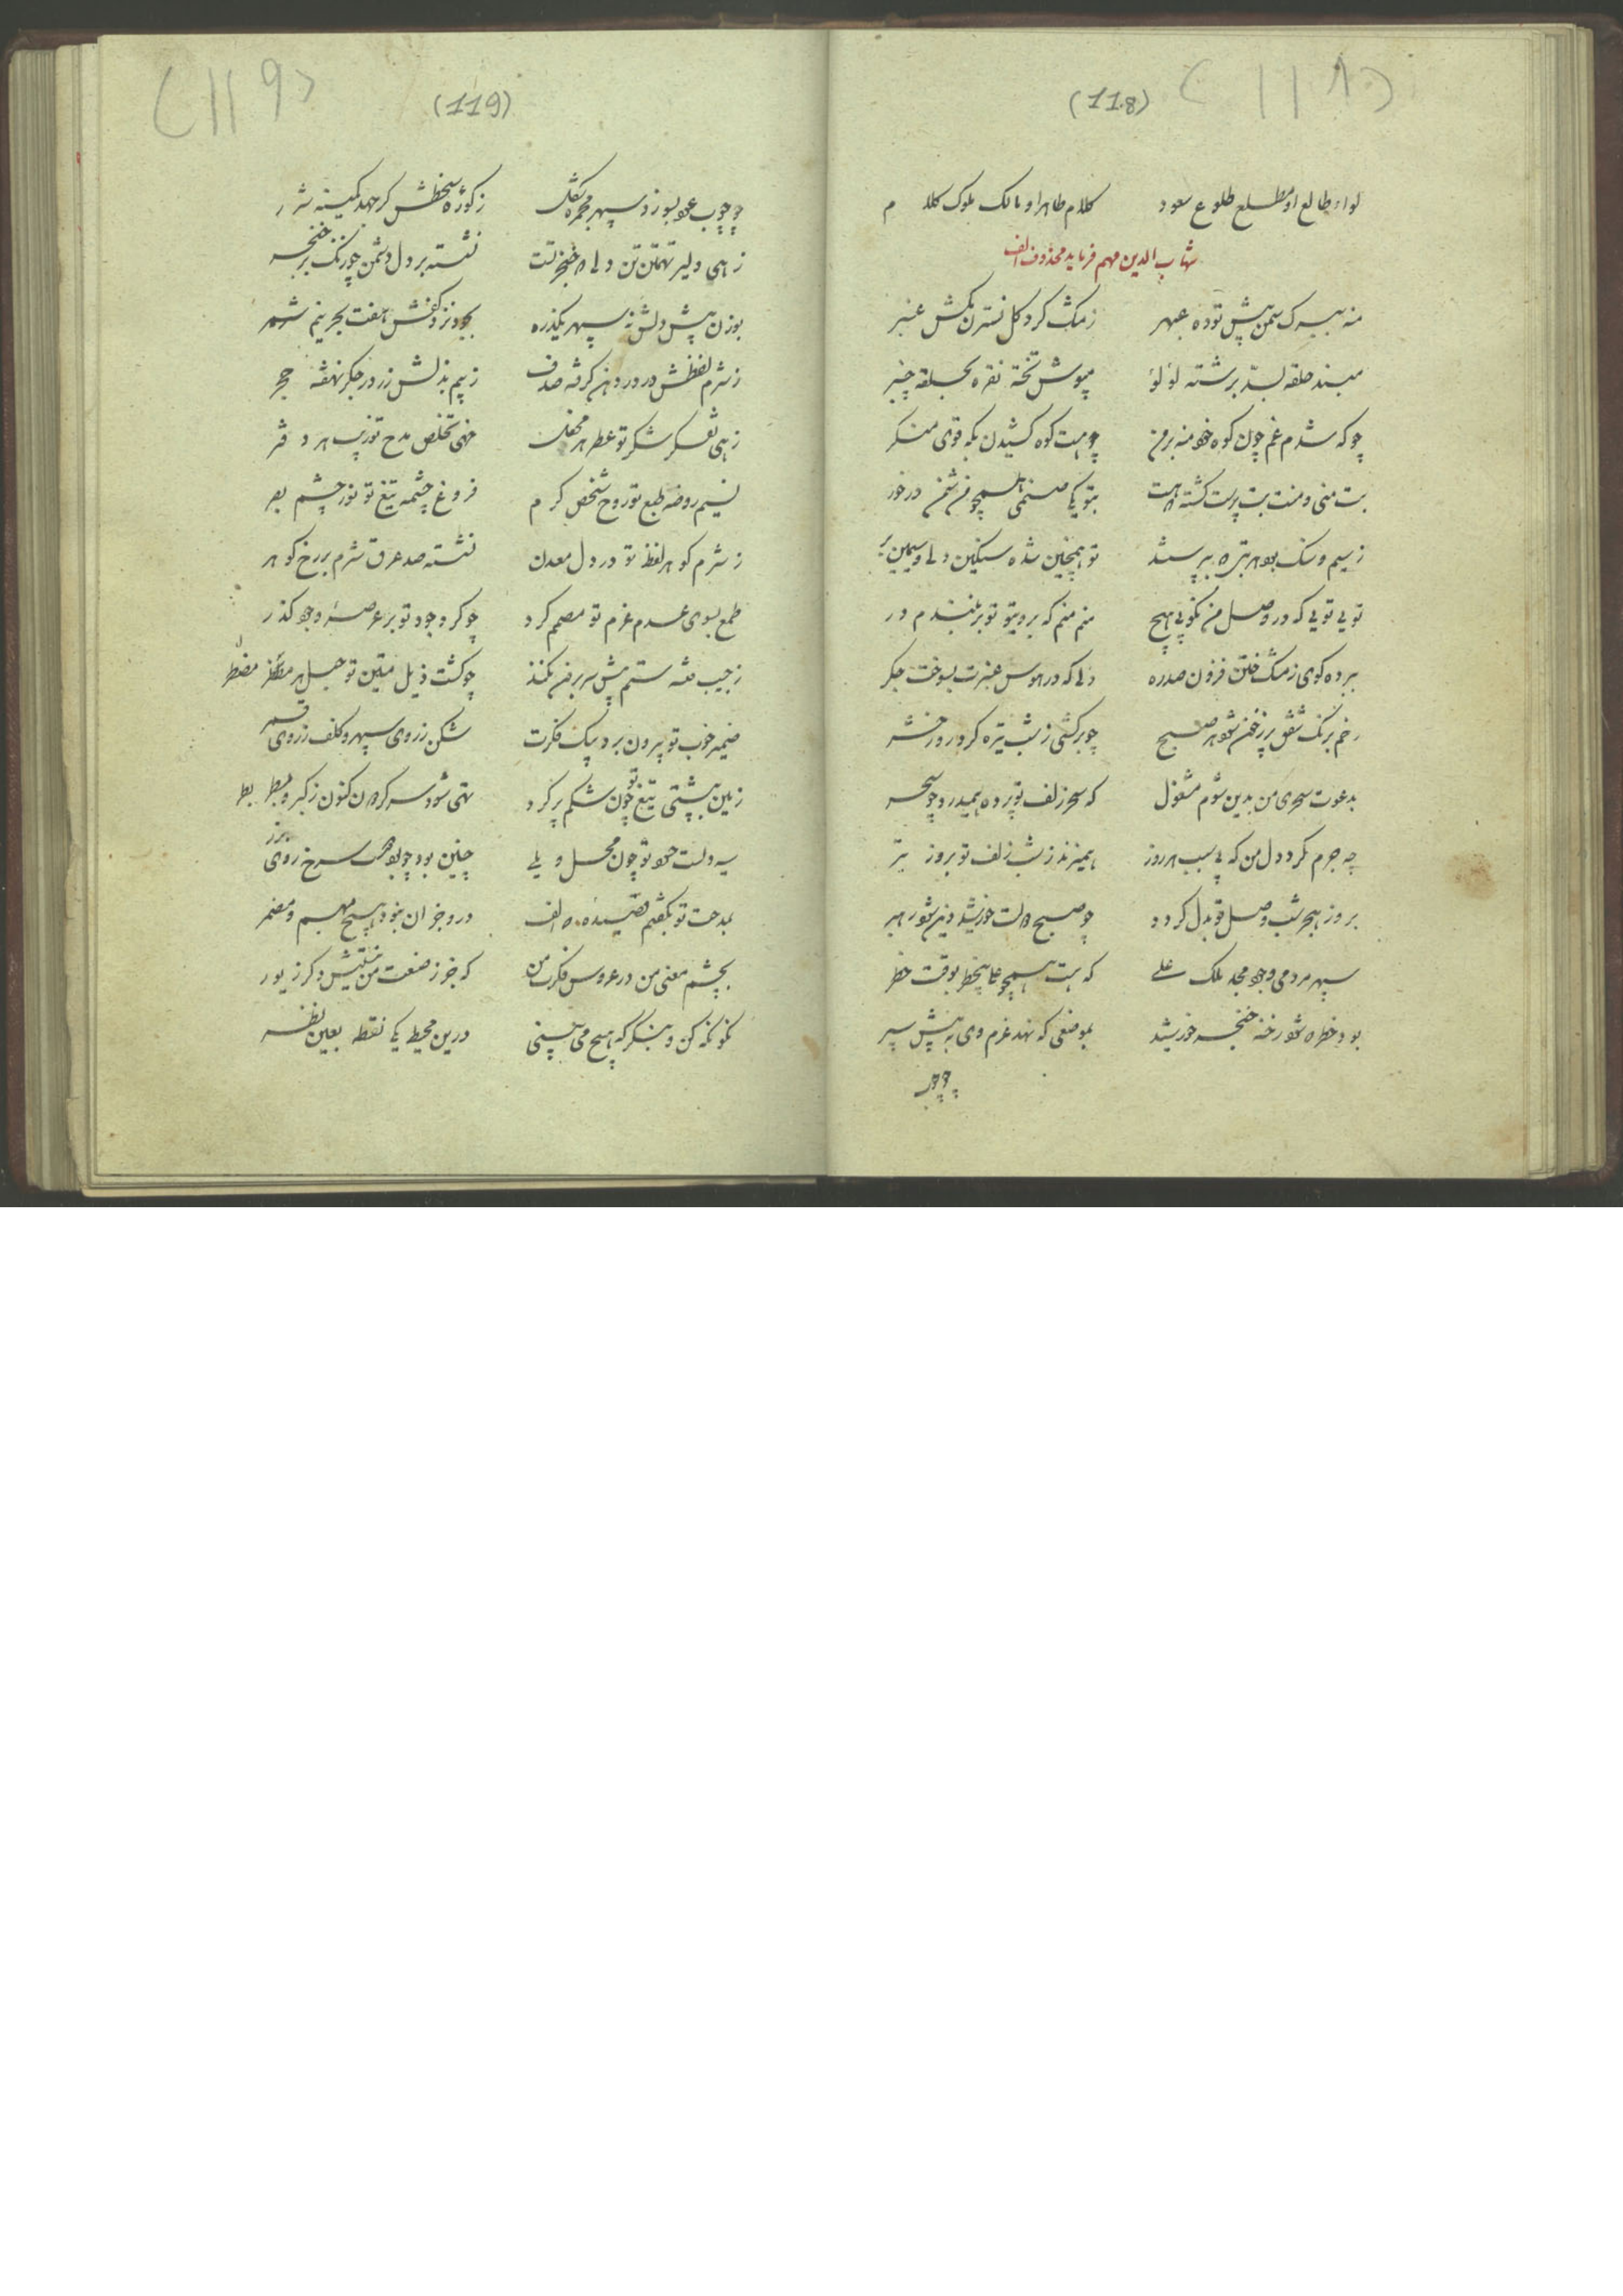 (118)
(١١٨)
لواء طالع او مطلع طلوع سعود
کلام طاهر او مالک ملوک کلام
شهاب الدین مهمره فرماید محذوف الف
منه ببرک سمن پیش توده عبهر
ز مشک کرد کل نسترن مکش عنبر
مبند حلقه بسد برشته لؤلؤ
مپوش تخته نقره بحلقه چنبر
چو که شدم ز غم چون کوه خود منه بر من
چو هست کوه کشیدن بکه قوی منکر
بت منی و منت بت پرست کشته
در خور
ز سیم و سنک بود هر بتی که بپرستند
تو همچنین شده سنکین دل و سیمین بر
تویی تویی که در وصل من نکوبی هیچ
منم منم که بروی تو بر نبندم در
ببرده کوی ز مشک ختن فزون صدره
دلم که در هوس عنبرت بسوخت جکر
رخم برنک شفق بر ز خون شود هر صبح
چو برکشی ز شب تیره کرد روز حشر
بدعوت سحری من بدین شوم مشغول
که سحر زلف تو پرده همیدرد چو سحر
چه جرم کرد دل من که بی سبب هر روز
همیزند ز شب زلف تو بروز تیر
بروز هجر شب وصل تو بدل کردد
چو صبح دولت خورشید دین شود رهبر
سپهر مردمی وجود مجد ملک علی
که هست همچو علی بیخطر بوقت خطر
بود خطر که شود رخنه خنجر خورشید
بموضعی که نهد عزم وی به پیش سپر
چو چوب
(119)
(١١٩)
چو چوب عود بسوزد سپهر مجمره شکل
ز کوره سخطش کر جهد کمینه شرر
زهی دلیر تهمتن تن دلی که خنجر تست
نشسته بر دل دشمن چو زنک بر خنجر
بوزن پیش دلش نه سپهر یکذره
بجود نزد کفش هفت بحر نیم شمر
ز شرم لفظش در در دهن کرفته صدف
ز بیم بذلش زر در جکر نهفته حجر
زهی تفکر شکر تو عطر هر محفل
خهی تخلص مدح تو زیب هر دفتر
نسیم روضه طبع تو روح شخص کرم
فروغ چشمه تیغ تو نور چشم بصر
ز شرم کوهر لفظ تو در دل معدن
نشسته صد عرق شرم بر رخ کوهر
طمع بسوی عدم عزم تو مصمم کرد
چو کرد جود تو بر عرصه وجود کذر
ز جیب فتنه ستم پیش سر برون نکند
چو کشت ذیل متین تو حبل هر مضطر
ضمیر خوب تو بیرون برد بپیک فکرت
شکن ز روی سپهر و کلف ز روی قمر
زمین بپشتی تیغ تو چون شکم پر کرد
تهی شود سر کردون کنون ز کبر و بطر
سیه دلست حسود تو چون محل ویلی
چنین بود چو بود همت سرخ روی بزر
بمدحت تو بکفتم قصیده که الف
درو چو آن نبود هیچ مبهم و مضمر
بچشم معنی من در عروس فکرت من
که جز ز صنعت من نیستش دکر زیور
نکو نکه کن و بنکر که هیچ می بینی
درین محیط یکی نقطه بعین نظر